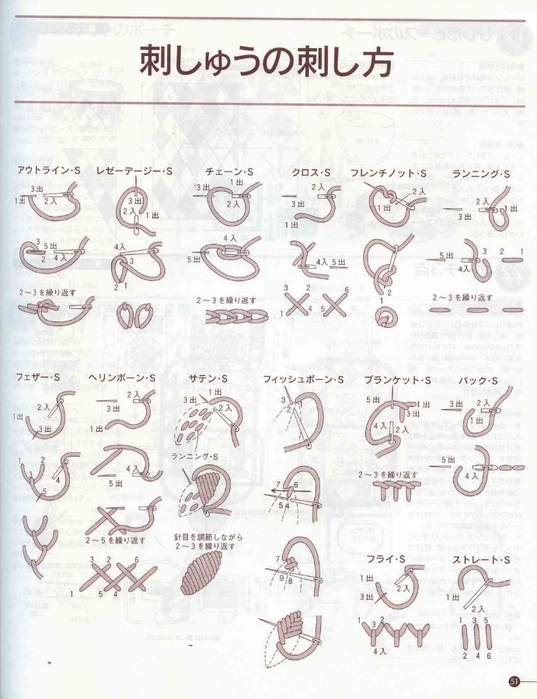 刺しゅうの刺し方
アウトライン・S
レゼーデージー・S
チェーン・S
クロス・S
フレンチノット・S
ランニング・S
3出
1出
2入
3出
2入
1出
3出
1出
2入
2入
3出
1出
1出
2入
2入
3出
1出
3
5出
2
4入
4入
2
1
4入
5出
4入
5出
5出
4入
3
2
1
2〜3を繰り返す
2〜3を繰り返す
3
2
6
1
4
5
1
2
2〜3を繰り返す
フェザー・S
ヘリンボーン・S
サテン・S
フィッシュボーン・S
ブランケット・S
バック・S
1出
2入
3出
2入
3出
1出
1出
3出
2入
3
1
2
5出
1出
3出
4入
2入
3出
2入
1出
ランニング・S
1
3
2
4
5
4入
5出
7
6
5
4
2〜3を繰り返す
5出
4入
2〜5を繰り返す
針目を調節しながら
2〜3を繰り返す
3
2
6
1
5
4
7
9
8
フライ・S
ストレート・S
1出
3出
2入
1出
2入
1
3
2
4入
1
3
5
2
4
6
51